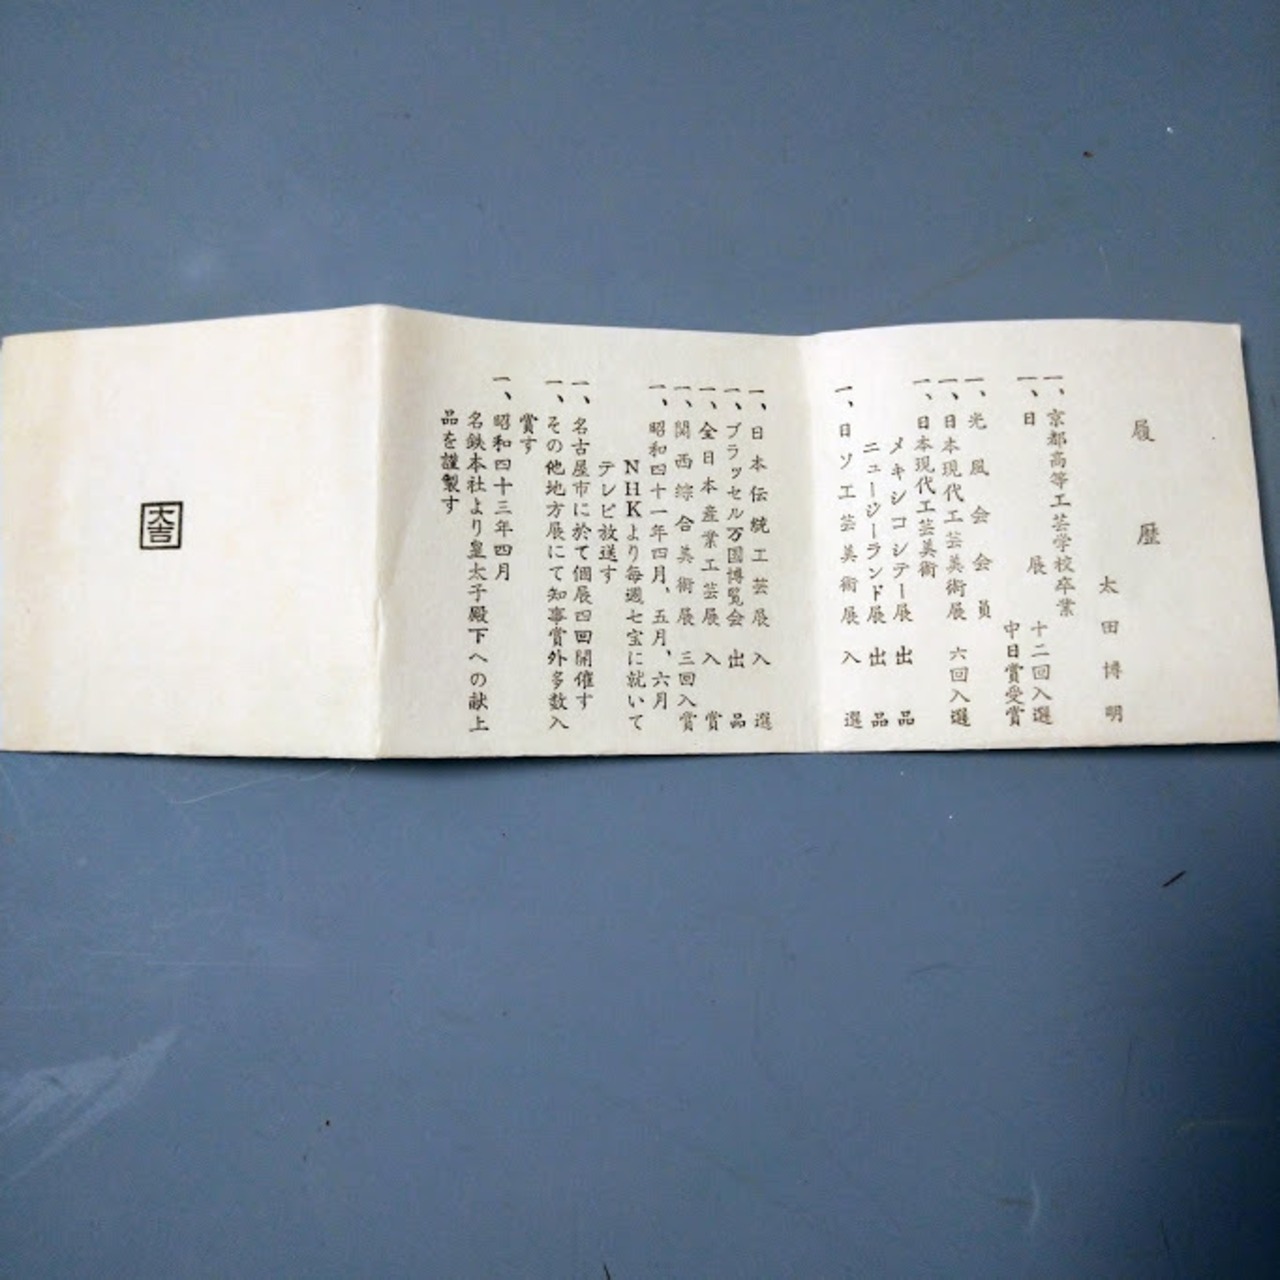 履歴
太田博明
一、京都高等工芸学校卒業
一、日展 十二回入選
中日賞受賞
一、光風会会員
一、日本現代工芸美術展 六回入選
一、日本現代工芸美術
メキシコシテー展 出品
ニュージーランド展 出品
一、日ソ工芸美術展 入選
一、日本伝統工芸展 入選
一、ブラッセル万国博覧会 出品
一、全日本産業工芸展 入賞
一、関西綜合美術展 三回入賞
一、昭和四十一年四月、五月、六月
NHKより毎週七宝に就いて
テレビ放送す
一、名古屋市に於て個展四回開催す
一、その他地方展にて知事賞外多数入
賞す
一、昭和四十三年四月
名鉄本社より皇太子殿下への献上
品を謹製す
大吉